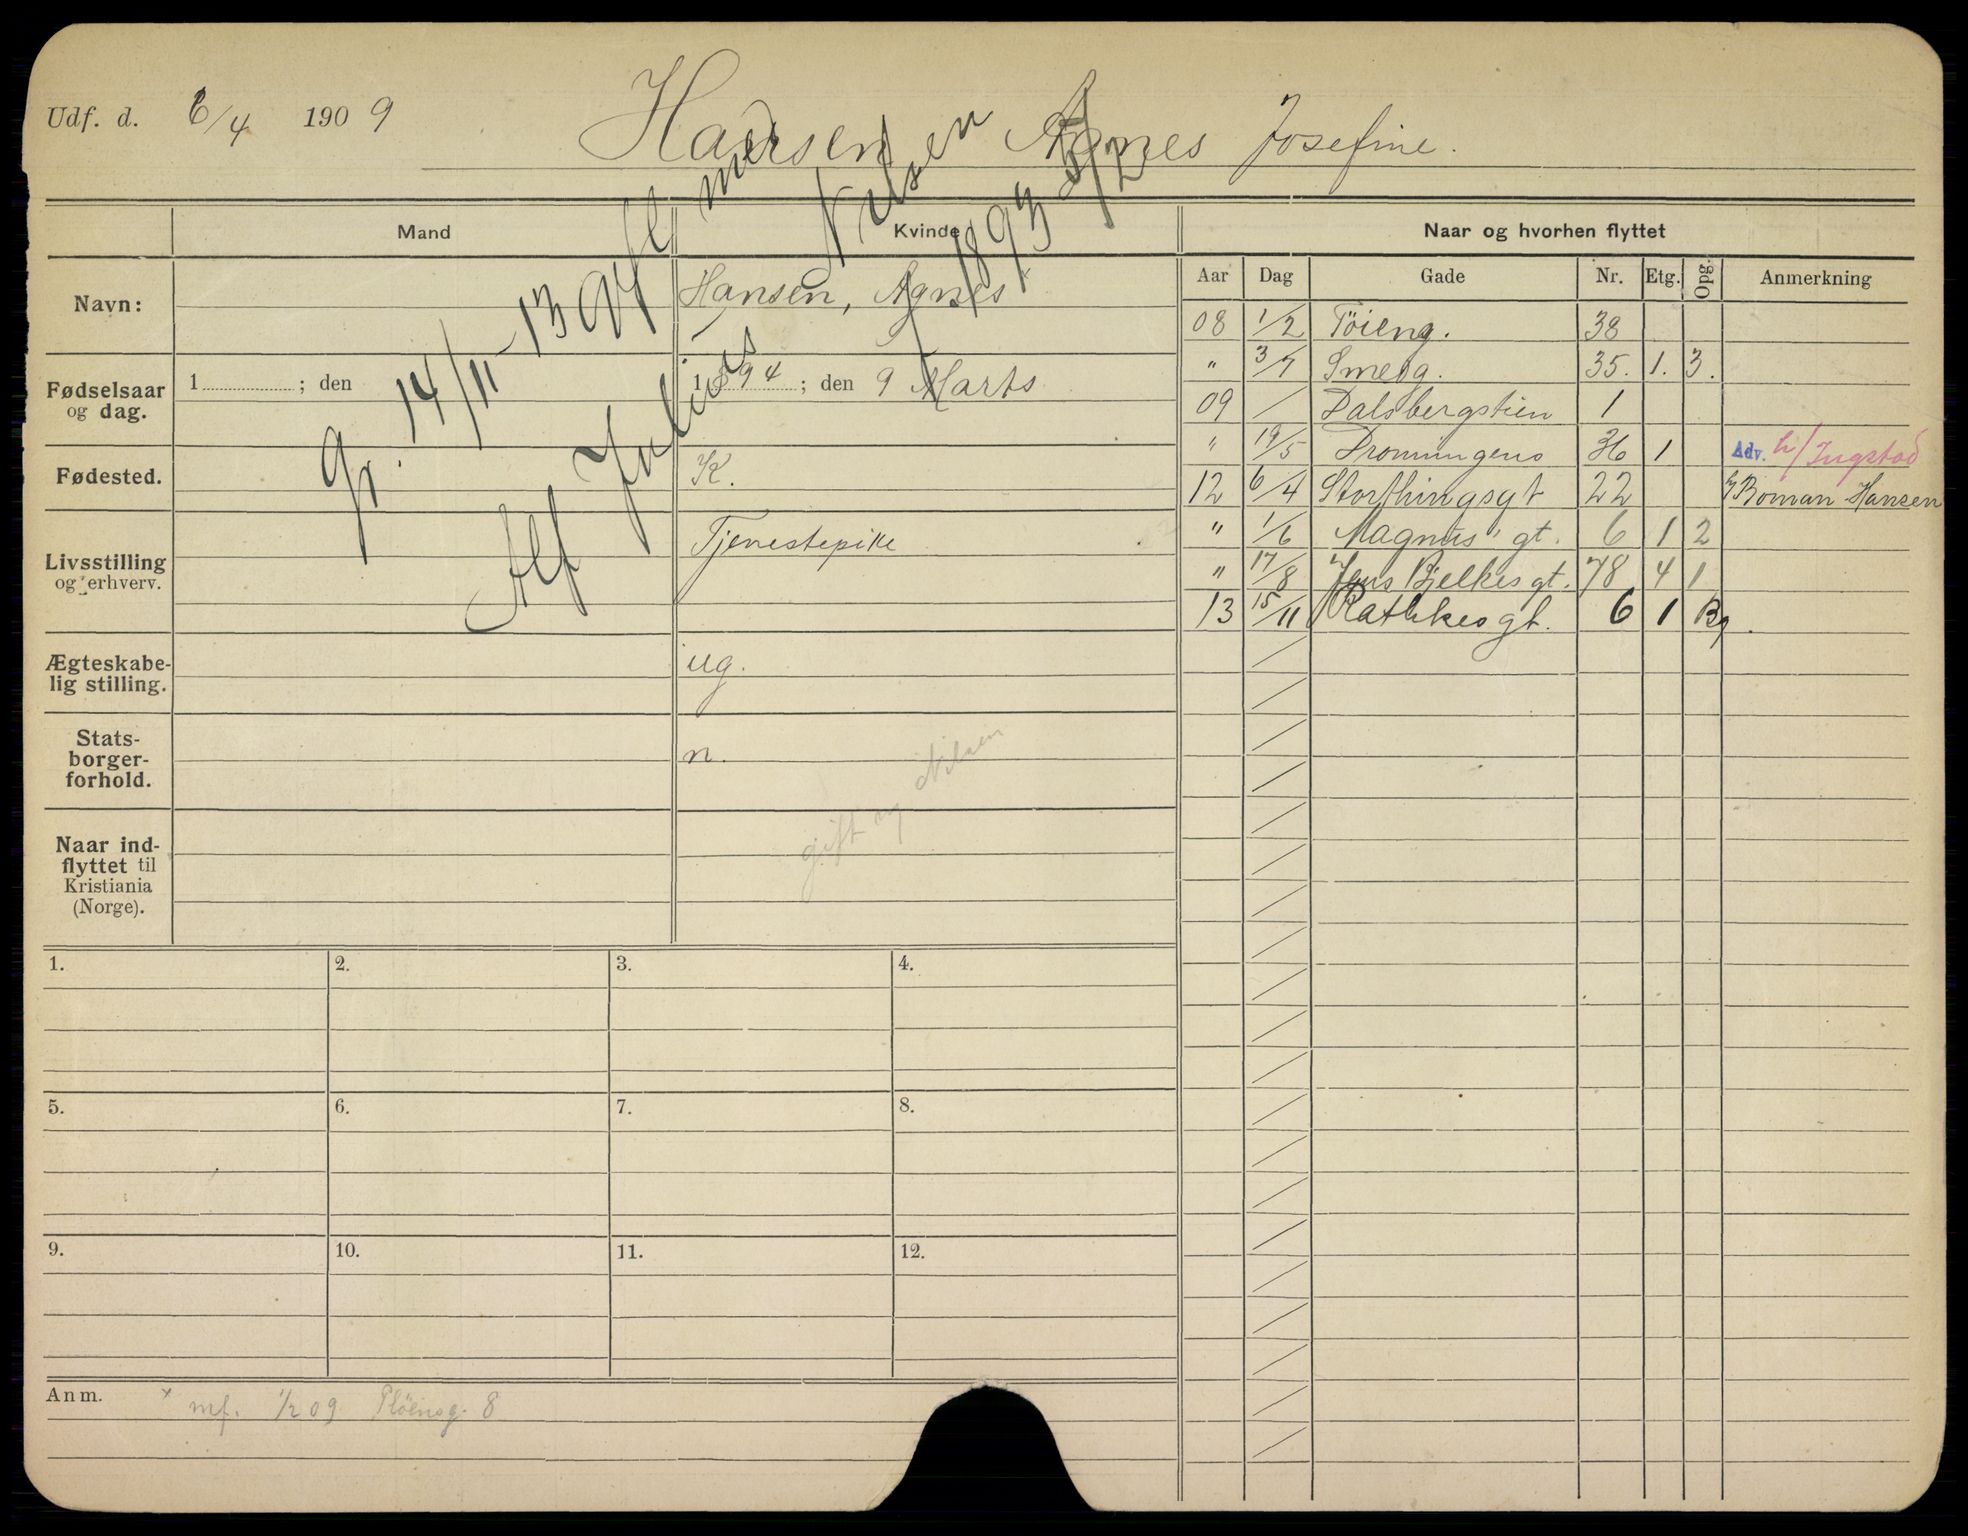 Udf. d. 6/4 1909
Hansen Agnes Josefine.
Mand
Kvinde
Naar og hvorhen flyttet
Navn:
Hansen, Agnes
Fødselsaar og dag.
1 ; den
1894 ; den 9 Marts
Fødested.
K.
Livsstilling og erhverv.
Tjenestepike
Ægteskabelig stilling.
ug.
Statsborgerforhold.
n.
Naar indflyttet til Kristiania (Norge).
gift og Nilsen
gr. 14/11-13 Afl med
Alf Julius Nilsen
f 1893 5/2
Aar Dag Gade Nr. Etg. Opg. Anmerkning
08 1/2 Töieng. 38
" 3/7 Smedg. 35. 1. 3.
09 / Dalsbergstien 1
" 19/5 Dronningens 36 1 Adv. h/Ingstad
12 6/4 Storthingsgt 22 h/Boman-Hansen
" 1/6 Magnus' gt. 6 1 2
" 17/8 Jens Bjelkes gt. 78 4 1
13 15/11 Rathkes gt. 6 1 Bg.
1. 2. 3. 4.
5. 6. 7. 8.
9. 10. 11. 12.
Anm. x mf. 1/2 09 Plöensg. 8